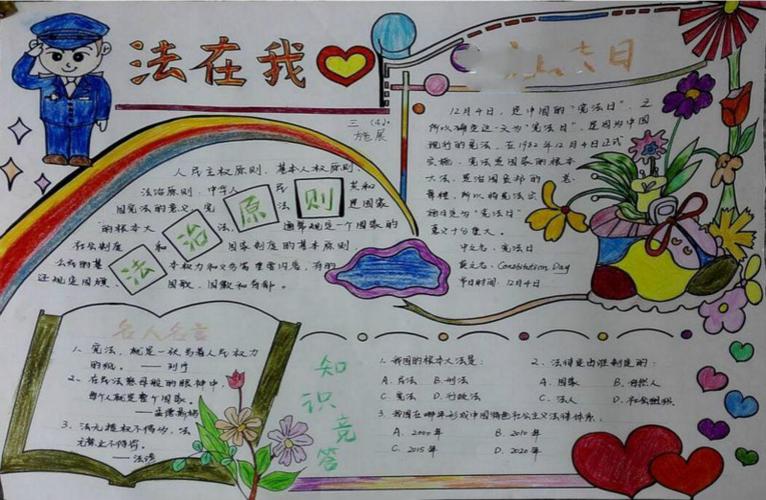 法在我
日
三（4）.
施展
人民主权原则、基本人权原则、
法治原则，中华人 民 共和
国宪法的意义，宪 法 是国家
的根本大 法， 通常规定一个国家的
社会制度 国家制度的基本原则
的基 本权力和义务等重要内容，有的
还规定国旗、 国歌、国徽和首都。
法治原则
12月4日，是中国的“宪法日”，之
所以确定这一天为“宪法日”，是因为中国
现行的宪法，在1982年12月4日正式
实施，宪法是国家的根本
大法，是治国安邦的 总
章程，所以将宪法实
施日定为“宪法日”
意义十分重大。
中文名：宪法日
英文名：Constitution Day
节日时间：12月4日
名人名言
1、宪法，就是一张写着人民权力
的纸。——列宁
2、在民法慈母般的眼神中，
每个人就是整个国家。
——孟德斯鸠
3、法无授权不得为，法
无禁止不得罚。
——法谚
知识竞答
1、我国的根本大法是：
A、民法 B、刑法
C、宪法 D、行政法
2、法律是由谁制定的：
A、国家 B、自然人
C、法人 D、社会组织
3、我国在哪年形成中国特色社会主义法律体系。
A、2000年 B、2010年
C、2015年 D、2020年